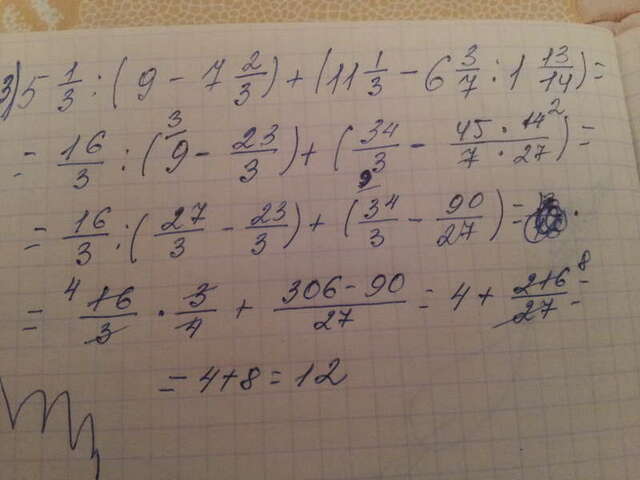 3) 5 1/3 : (9 - 7 2/3) + (11 1/3 - 6 3/7 : 1 13/14) =
= 16/3 : (9 3/ - 23/3) + (34/3 - 45 · 14 2/7 · 27) =
= 16/3 : (27/3 - 23/3) + (34 9/3 - 90/27) =
= 4 16/3 · 3/4 + 306 - 90/27 = 4 + 216 8/27 =
= 4 + 8 = 12